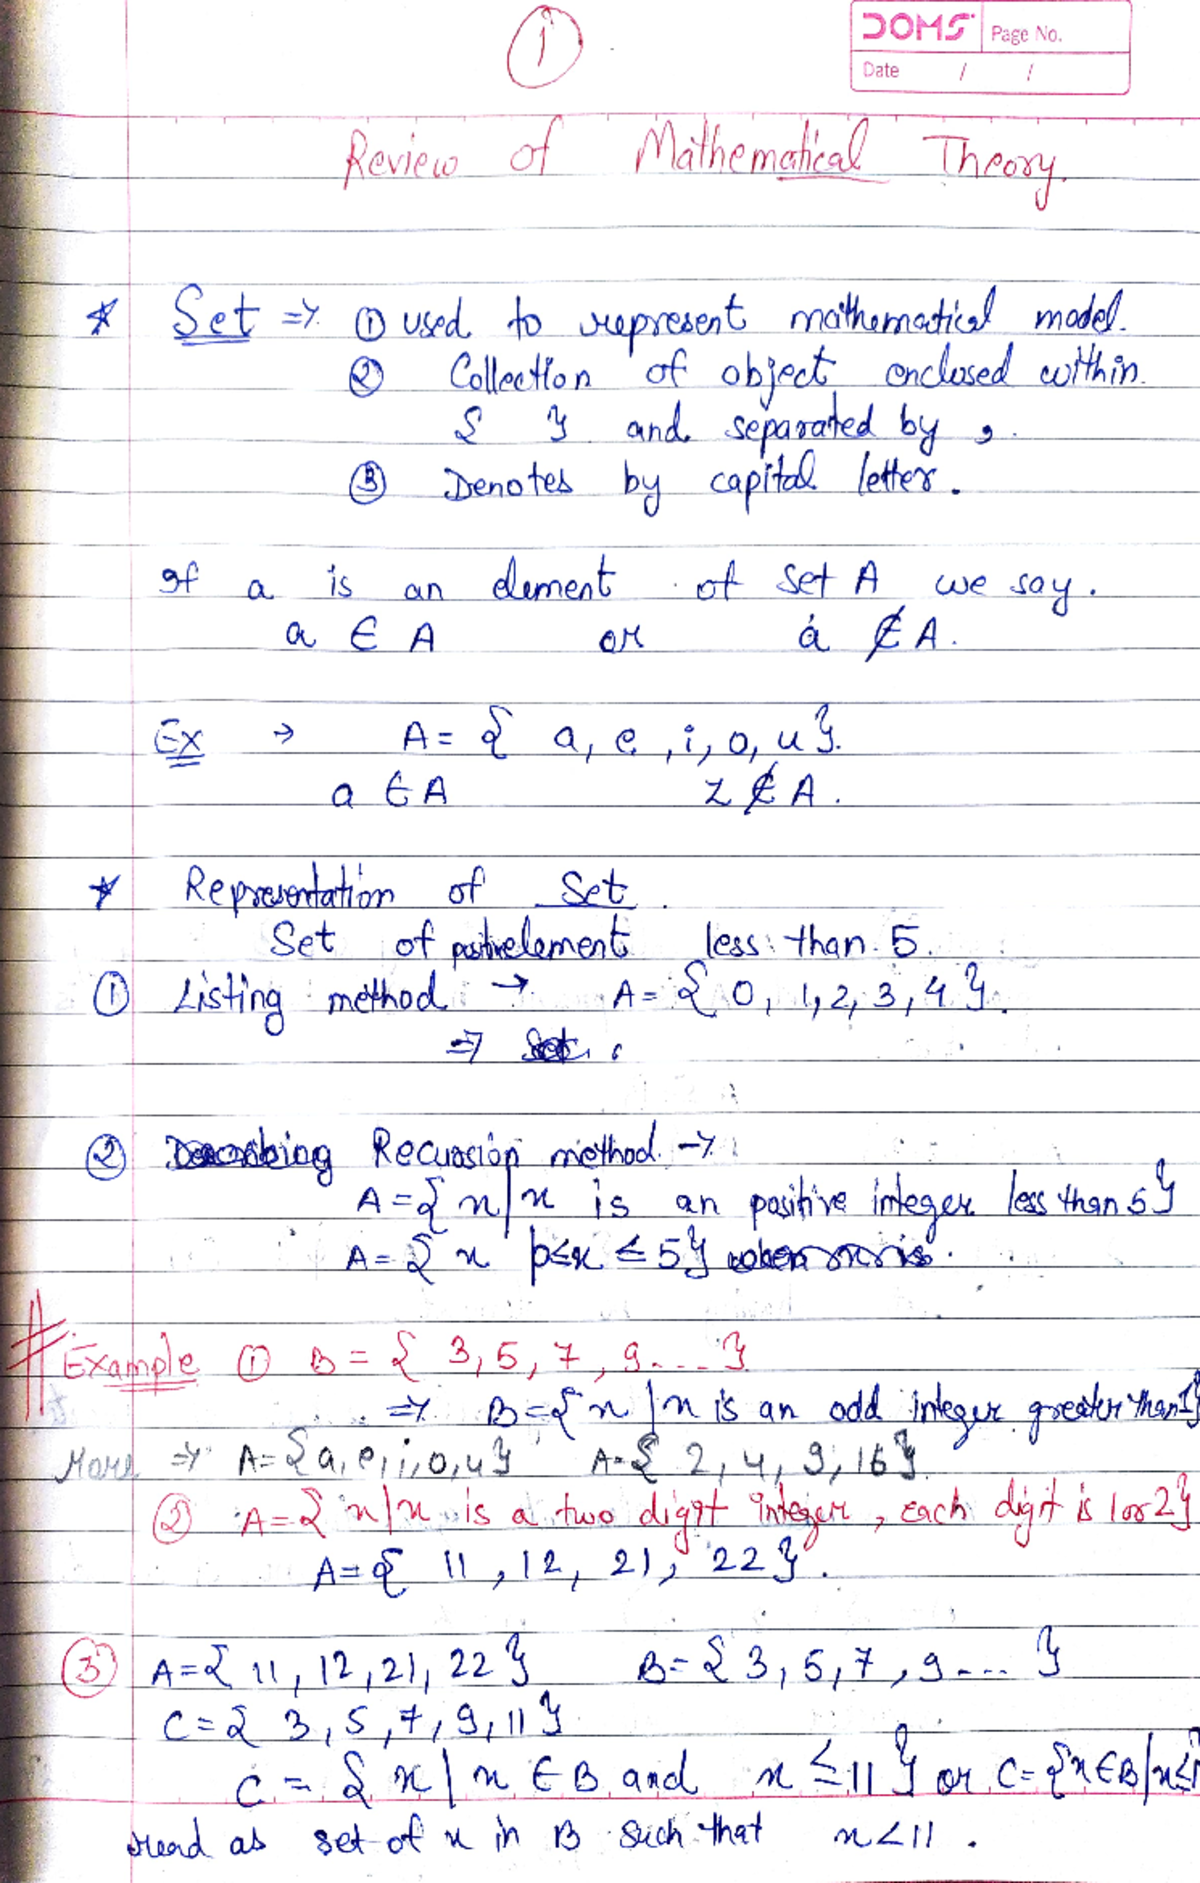 1
DOMS Page No.
Date / /
Review of Mathematical Theory.
* Set => ① used to represent mathematical model.
② Collection of object enclosed within
{ } and separated by , .
③ Denotes by capital letter.
If a is an element of set A we say.
a ∈ A or a ∉ A.
Ex → A = { a, e, i, o, u }.
a ∈ A z ∉ A.
* Representation of Set.
Set of positive element less than 5.
① Listing method → A = { 0, 1, 2, 3, 4 }.
=> Set.
② Describing Recursion method →
A = { x | x is an positive integer less than 5 }
A = { x 0≤x ≤ 5 }
# Example ① B = { 3, 5, 7, 9 .... }
=> B = { x | x is an odd integer greater than 1}
More => A = {a, e, i, o, u} A = { 2, 4, 9, 16 }.
② A = { x | x is a two digit integer, each digit is 1 or 2}
A = { 11, 12, 21, 22 }.
③ A = { 11, 12, 21, 22 } B = { 3, 5, 7, 9 .... }
C = { 3, 5, 7, 9, 11 }
C = { x | x ∈ B and x ≤ 11 } or C = {x ∈ B | x ≤
read as set of x in B such that x < 11 .